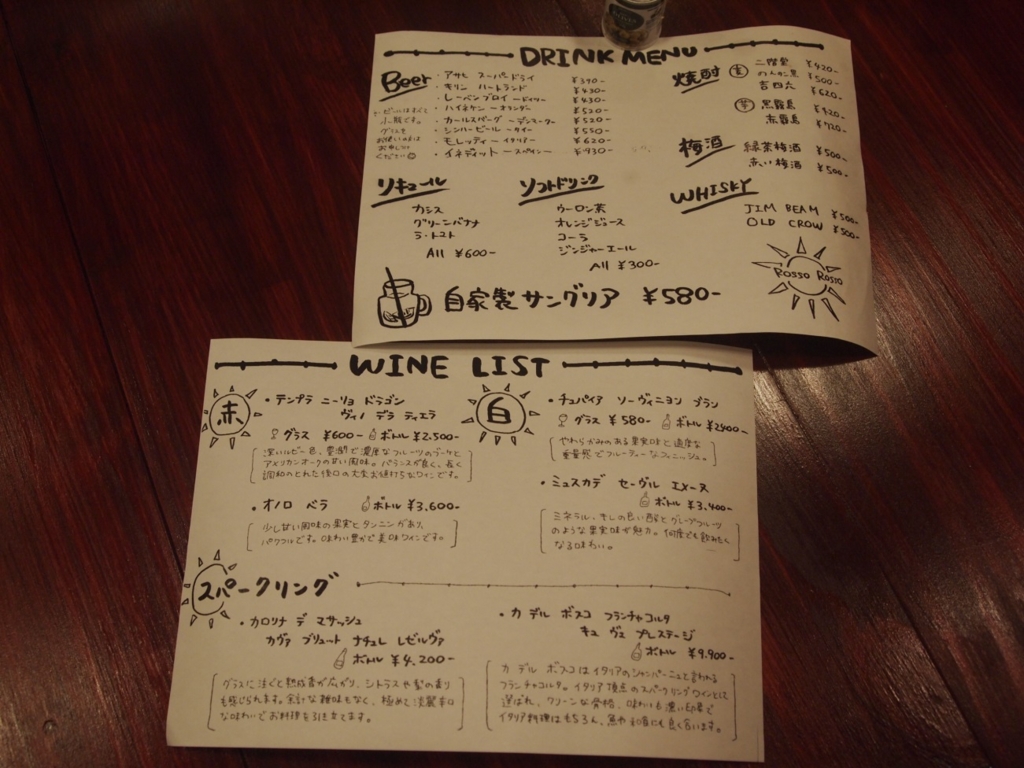 DRINK MENU
Beer
・アサヒ スーパードライ ¥390-
・キリン ハートランド ¥430-
・レーベンブロイ ～ドイツ～ ¥430-
・ハイネケン ～オランダ～ ¥520-
・カールスバーグ ～デンマーク～ ¥520-
・シンハービール ～タイ～ ¥550-
・モレッティ ～イタリア～ ¥620-
・イネディット ～スペイン～ ¥930-
ビールはすべて
小瓶です。
グラスを
お使いの方は
お申し付け
ください
焼酎
麦 二階堂 ¥420-
のんのこ黒 ¥500-
吉四六 ¥620-
芋 黒霧島 ¥420-
赤霧島 ¥720-
梅酒
緑茶梅酒 ¥500-
赤い梅酒 ¥500-
WHISKY
JIM BEAM ¥500-
OLD CROW ¥500-
リキュール
カシス
グリーンバナナ
ラ・トマト
All ¥600-
ソフトドリンク
ウーロン茶
オレンジジュース
コーラ
ジンジャーエール
All ¥300-
自家製サングリア ¥580-
Rosso Rosso
WINE LIST
赤
・テンプラ ニーリョ ドラゴン
ヴィノ デラ ティエラ
グラス ¥600- ボトル ¥2,500-
深いルビー色、豊潤で濃厚なフルーツのブーケと
アメリカンオークの甘い風味。バランスが良く、長く
調和のとれた後口の大変お値打ちなワインです。
・オノロ ベラ ボトル ¥3,600-
少し甘い風味の果実とタンニンがあり、
パワフルです。味わい豊かで美味ワインです。
白
・チュパイア ソーヴィニヨン ブラン
グラス ¥580- ボトル ¥2400-
やわらかみのある果実味と適度な
重量感でフルーティーなフィニッシュ。
・ミュスカデ セーヴル エメーヌ
ボトル ¥3,400-
ミネラル、キレの良い酸とグレープフルーツ
のような果実味が魅力。何度でも飲みたく
なる味わい。
スパークリング
・カロリナ デ マサッシュ
カヴァ ブリュット ナチュレ レゼルヴァ
ボトル ¥4,200-
グラスに注ぐと熟成香が広がり、シトラスや梨の香り
も感じられます。余計な雑味もなく、極めて淡麗辛口
な味わいでお料理を引き立てます。
・カ デル ボスコ フランチャコルタ
キュ ヴェ プレステージ
ボトル ¥9,900-
カ デル ボスコはイタリアのシャンパーニュと言われる
フランチャコルタ。イタリア頂点のスパークリングワインとして
選ばれ、クリーンな骨格、味わいも濃い印象で
イタリア料理はもちろん、魚や和食にも良く合います。